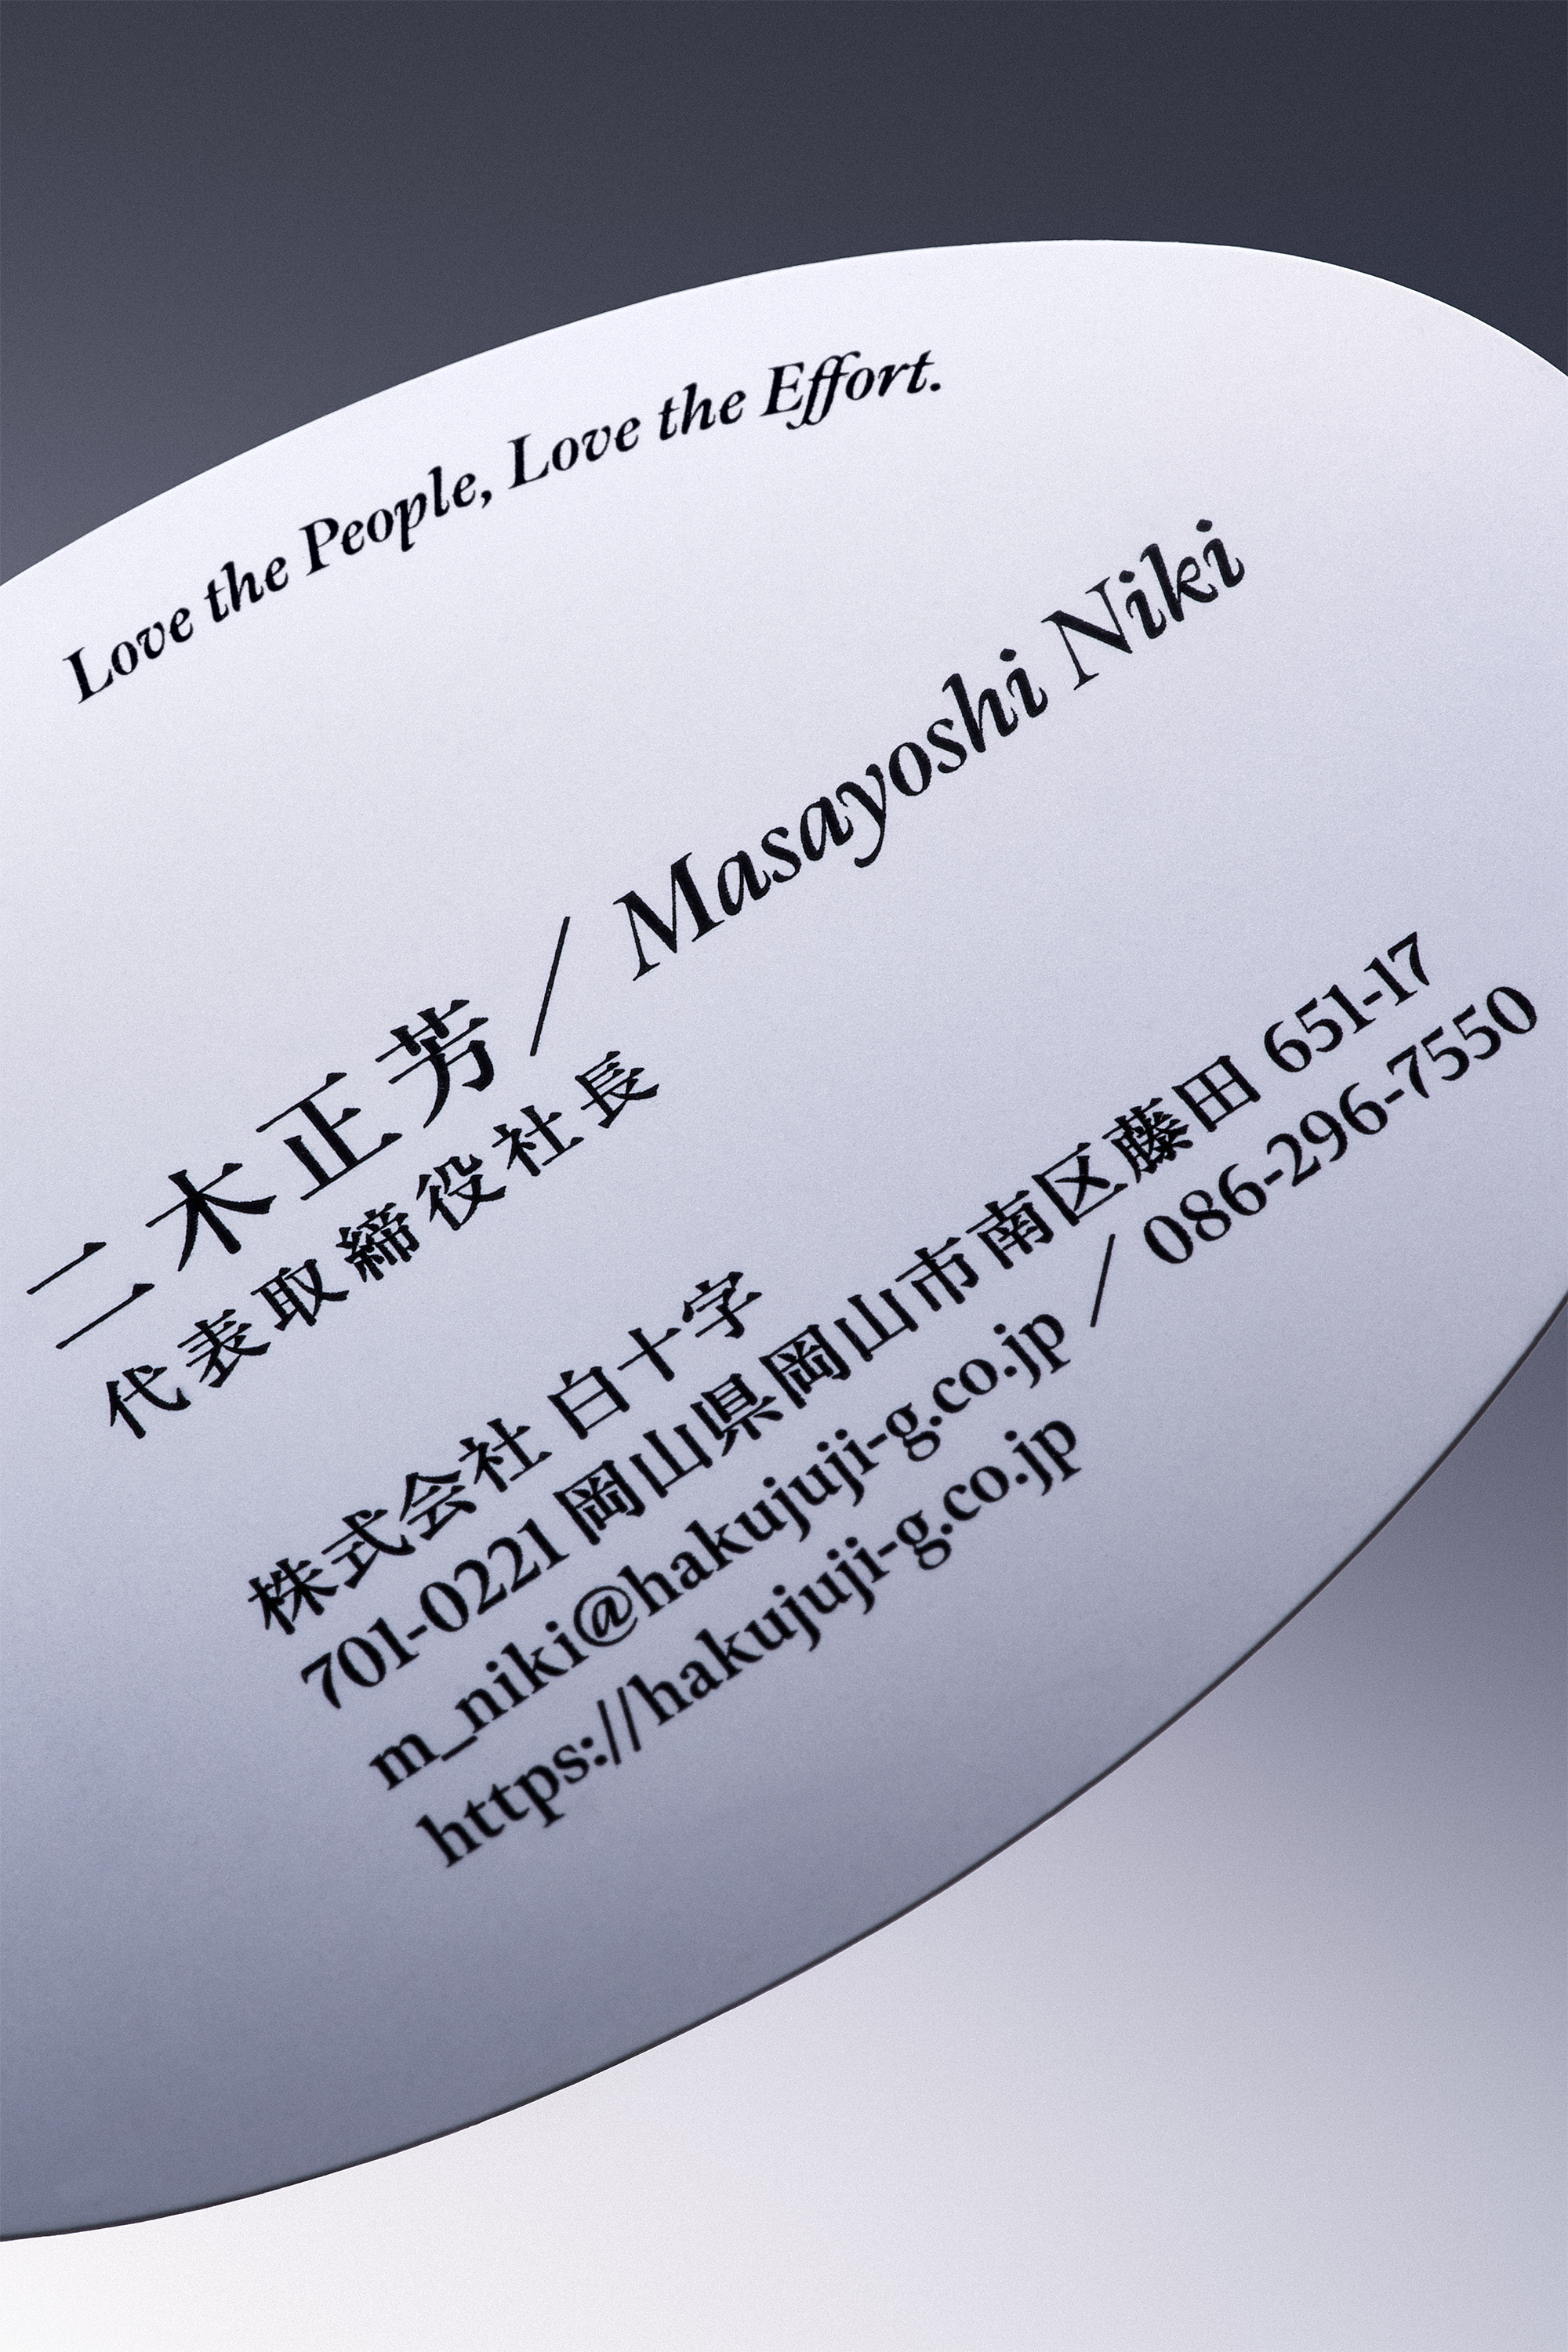 Love the People, Love the Effort.
二木正芳／Masayoshi Niki
代表取締役社長
株式会社 白十字
701-0221 岡山県岡山市南区藤田 651-17
m_niki@hakujuji-g.co.jp／086-296-7550
https://hakujuji-g.co.jp